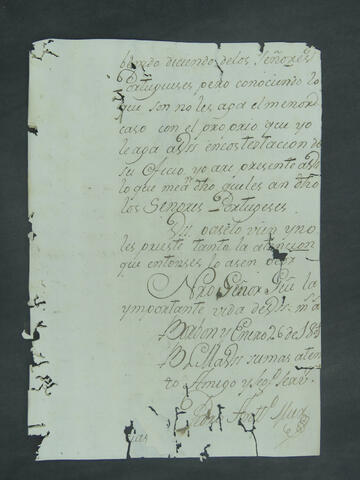 diciendo delos Señores
Portugueses pero conociendo lo
que son no les aga el menor
caso con el proprio que yo
le aga a Vm en contestacion de
su ficio yo are presente a Vm
lo que me an dho quiles an dho
los Señores Portugeses
Vm paselo vien y no
les preste tanto la atencion
que entonses lo asen peor
Nro Señor Gue la
ymportante vida de Vm. m. a
Borbon y Enero 26 de
B L M a Vm su mas aten
to Amigo y Seg. Serv.